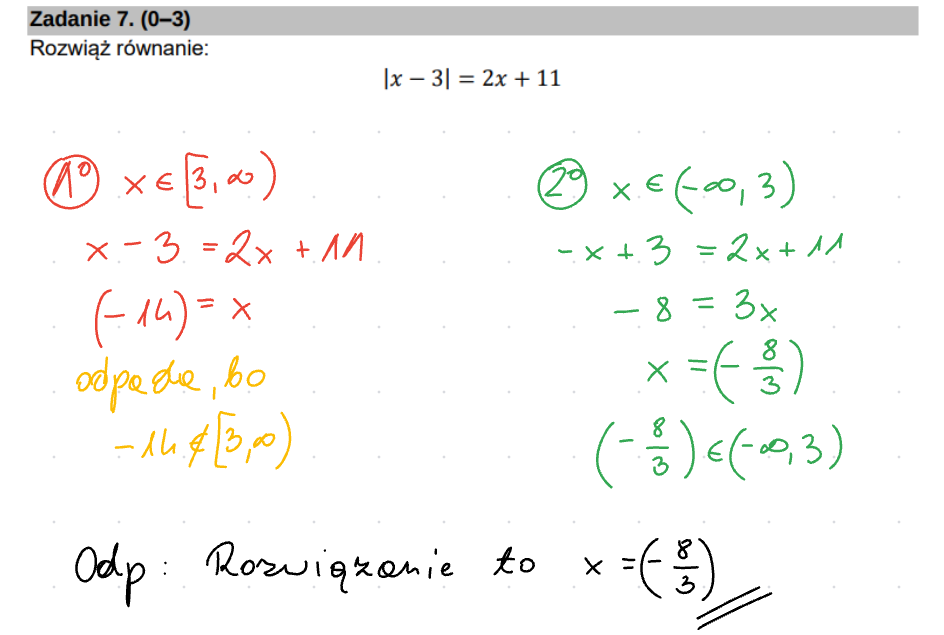 Zadanie 7. (0–3)
Rozwiąż równanie:
|x − 3| = 2x + 11
1° x ∈ [3, ∞)
x − 3 = 2x + 11
(−14) = x
odpada, bo
−14 ∉ [3, ∞)
2° x ∈ (−∞, 3)
−x + 3 = 2x + 11
−8 = 3x
x = (−8/3)
(−8/3) ∈ (−∞, 3)
Odp: Rozwiązanie to x = (−8/3)